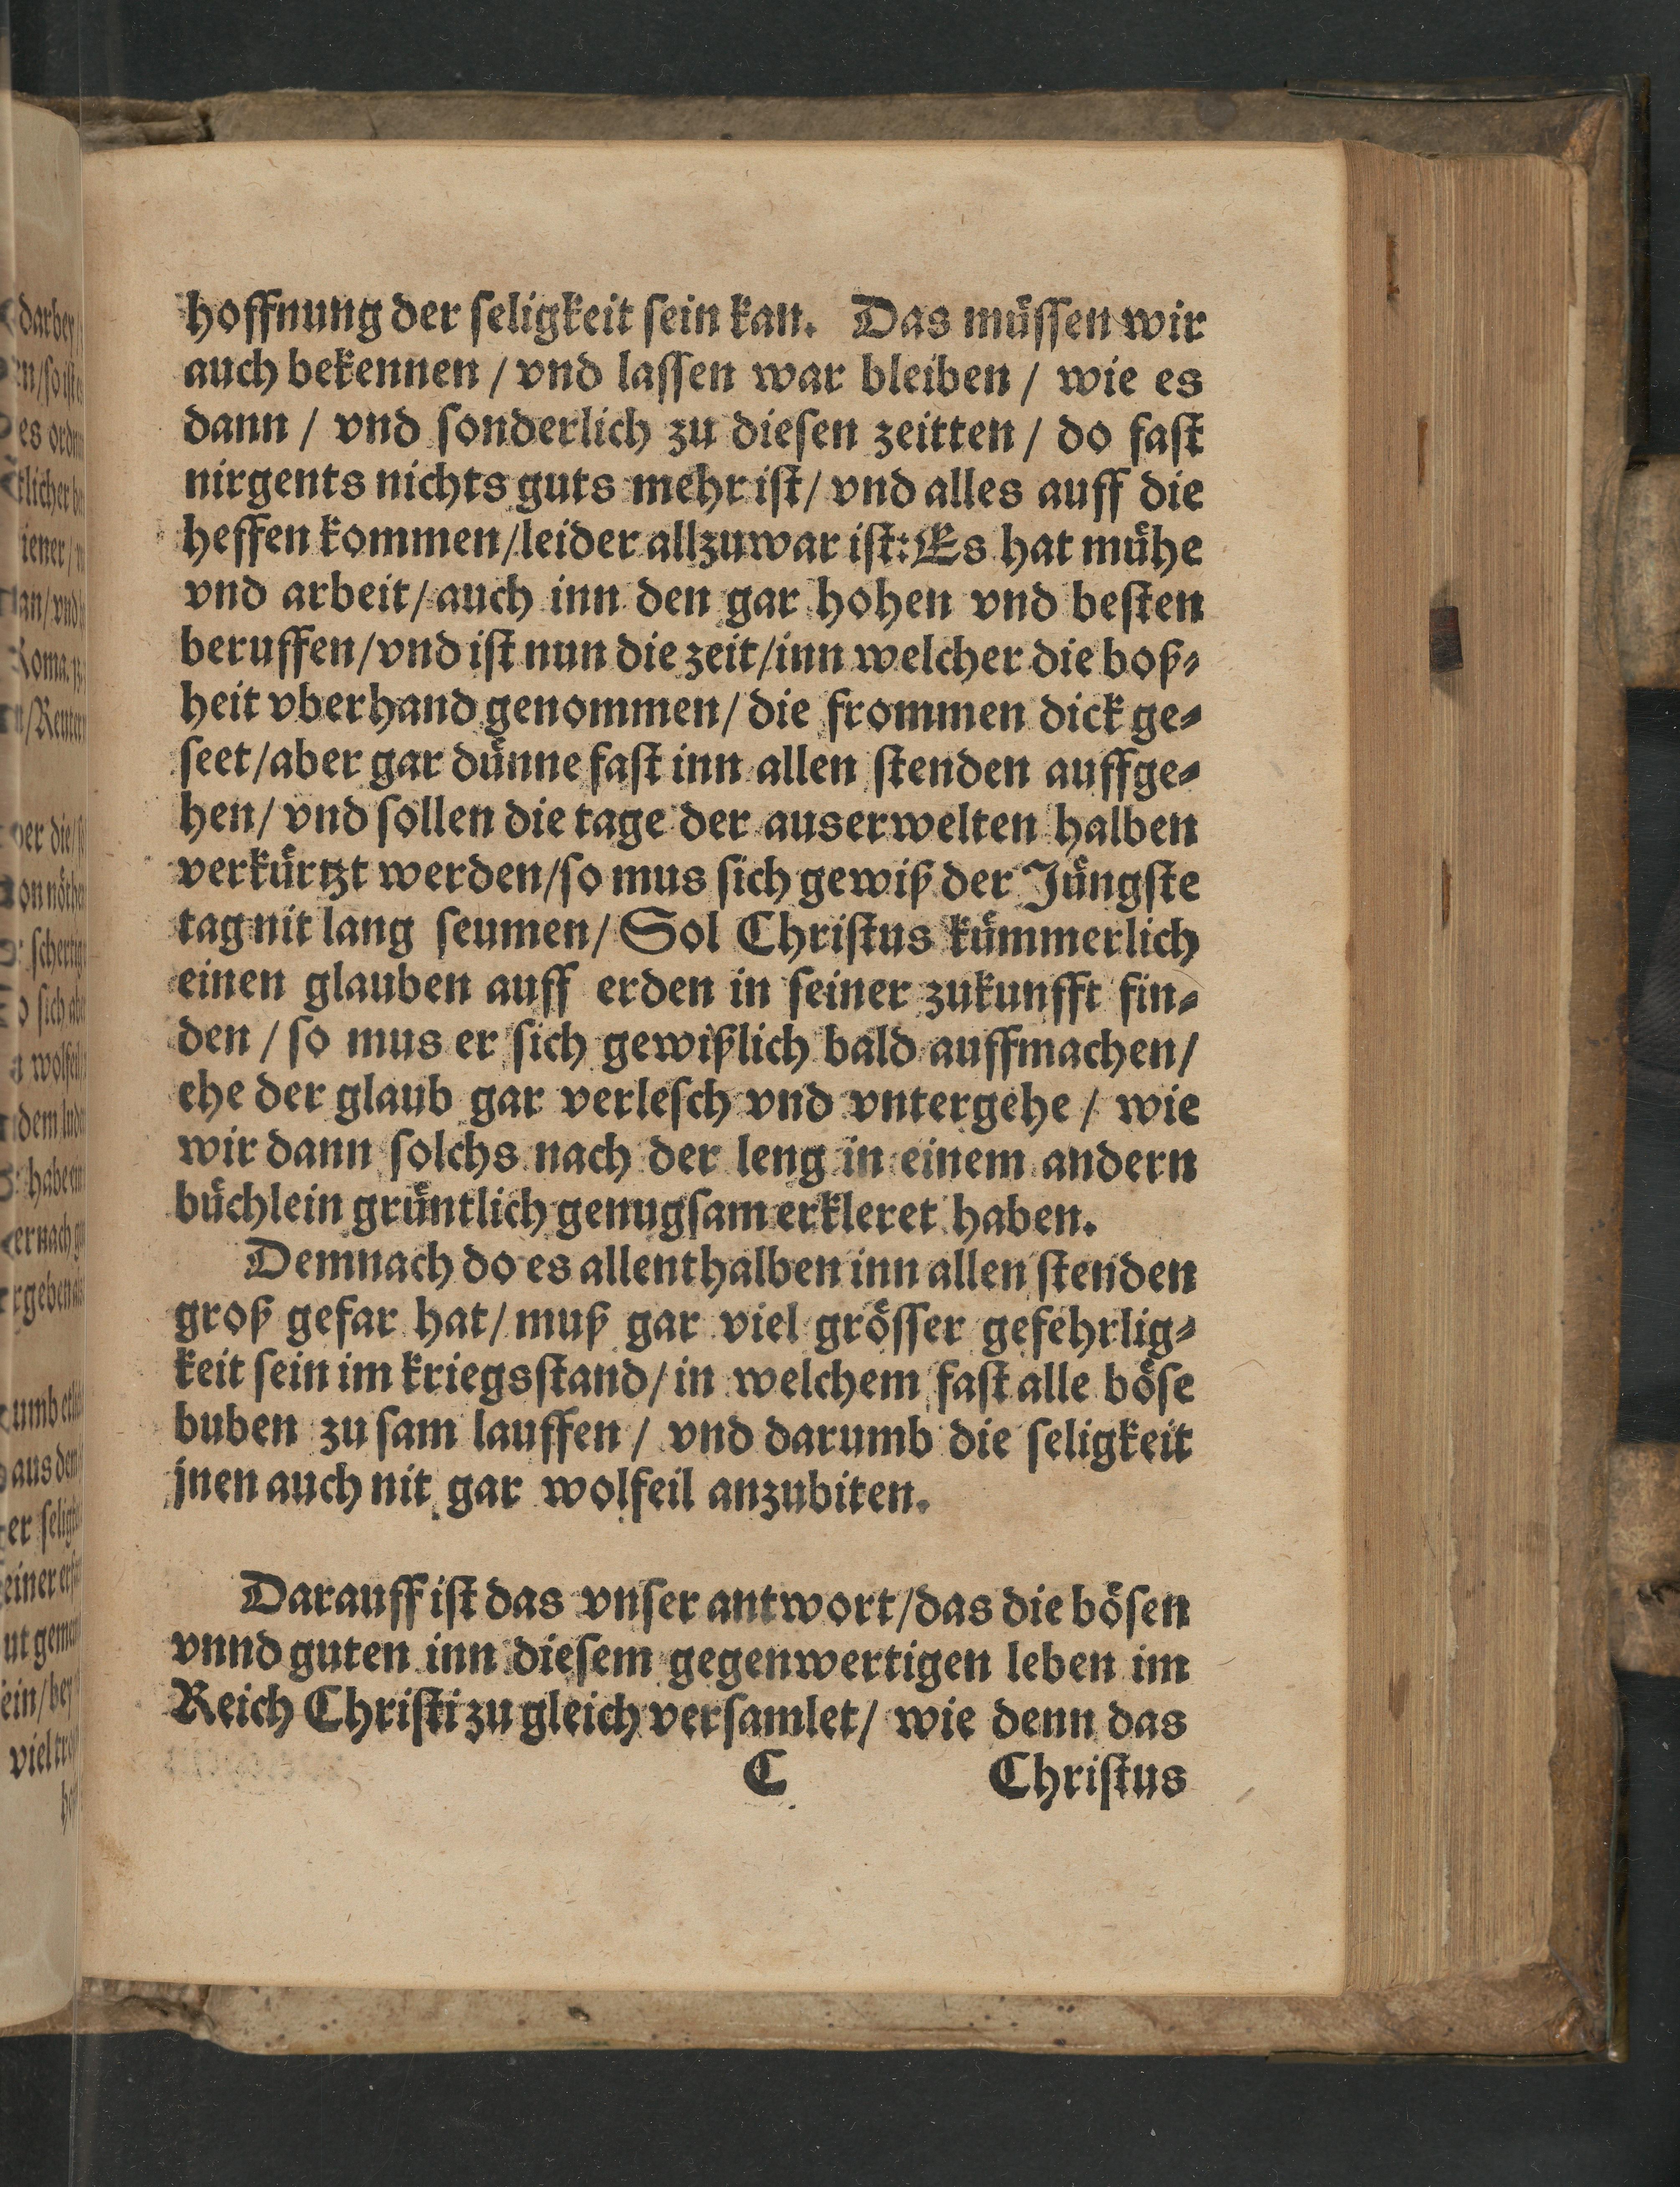 hoffnung der ſeligkeit ſein kan. Das muͤſſen wir
auch bekennen / vnd laſſen war bleiben / wie es
dann / vnd ſonderlich zu dieſen zeitten / do faſt
nirgents nichts guts mehr iſt / vnd alles auff die
heffen kommen / leider allzuwar iſt: Es hat muͤhe
vnd arbeit / auch inn den gar hohen vnd beſten
beruffen / vnd iſt nun die zeit / inn welcher die boß⸗
heit vberhand genommen / die frommen dick ge⸗
ſeet / aber gar duͤnne faſt inn allen ſtenden auffge⸗
hen / vnd ſollen die tage der auserwelten halben
verkuͤrtzt werden / ſo mus ſich gewiß der Juͤngſte
tag nit lang ſeumen / Sol Chriſtus kuͤmmerlich
einen glauben auff erden in ſeiner zukunfft fin⸗
den / ſo mus er ſich gewißlich bald auffmachen /
ehe der glaub gar verleſch vnd vntergehe / wie
wir dann ſolchs nach der leng in einem andern
buͤchlein gruͤntlich genugſam erkleret haben.
Demnach do es allenthalben inn allen ſtenden
groß gefar hat / muß gar viel groͤſſer gefehrlig⸗
keit ſein im kriegsſtand / in welchem faſt alle boͤſe
buben zu ſam lauffen / vnd darumb die ſeligkeit
jnen auch nit gar wolfeil anzubiten.
Darauff iſt das vnſer antwort / das die boͤſen
vnnd guten inn dieſem gegenwertigen leben im
Reich Chriſti zu gleich verſamlet / wie denn das
C Chriſtus